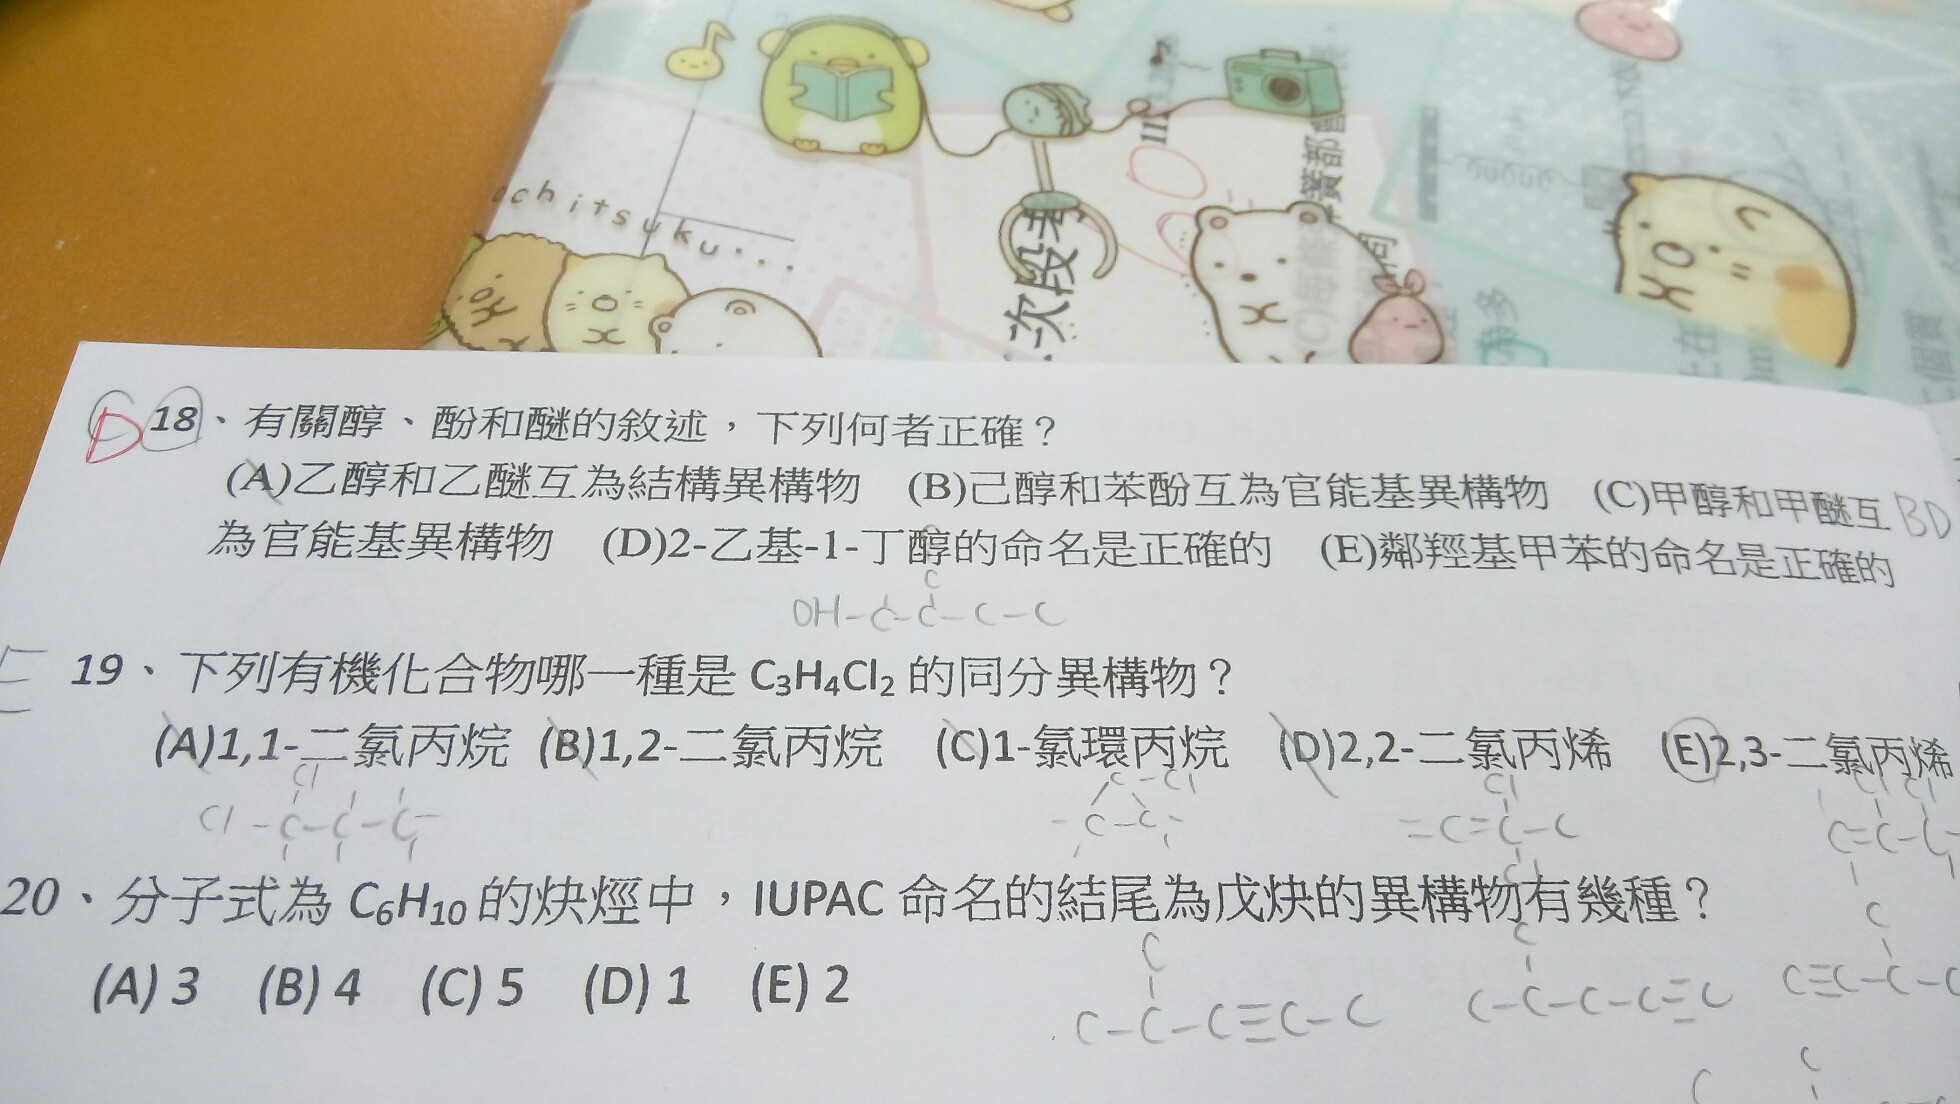 ochitsuku...
次段考
D 18、有關醇、酚和醚的敘述，下列何者正確？
(A)乙醇和乙醚互為結構異構物 (B)己醇和苯酚互為官能基異構物 (C)甲醇和甲醚互 BD
為官能基異構物 (D)2-乙基-1-丁醇的命名是正確的 (E)鄰羥基甲苯的命名是正確的
C
C
OH-C-C-C-C
E 19、下列有機化合物哪一種是 C₃H₄Cl₂ 的同分異構物？
(A)1,1-二氯丙烷 (B)1,2-二氯丙烷 (C)1-氯環丙烷 (D)2,2-二氯丙烯 (E)2,3-二氯丙烯
Cl C-Cl Cl Cl Cl
Cl-C-C-C- -C-C- =C=C-C C=C-C-
Cl
20、分子式為 C₆H₁₀ 的炔烴中，IUPAC 命名的結尾為戊炔的異構物有幾種？
C C C
(A) 3 (B) 4 (C) 5 (D) 1 (E) 2
C-C-C≡C-C C-C-C-C≡C C≡C-C-C
C C